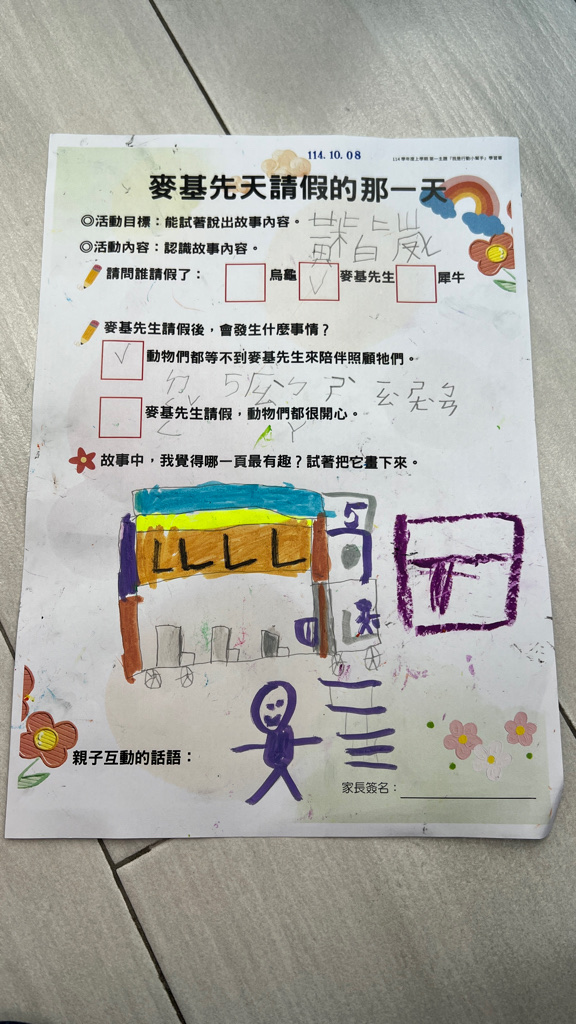 114.10.08
114 學年度上學期 第一主題「我是行動小幫手」學習單
麥基先天請假的那一天
◎活動目標：能試著說出故事內容。
◎活動內容：認識故事內容。
請問誰請假了： 烏龜 ✓ 麥基先生 犀牛
麥基先生請假後，會發生什麼事情？
✓ 動物們都等不到麥基先生來陪伴照顧牠們。
麥基先生請假，動物們都很開心。
故事中，我覺得哪一頁最有趣？試著把它畫下來。
親子互動的話語：
家長簽名：